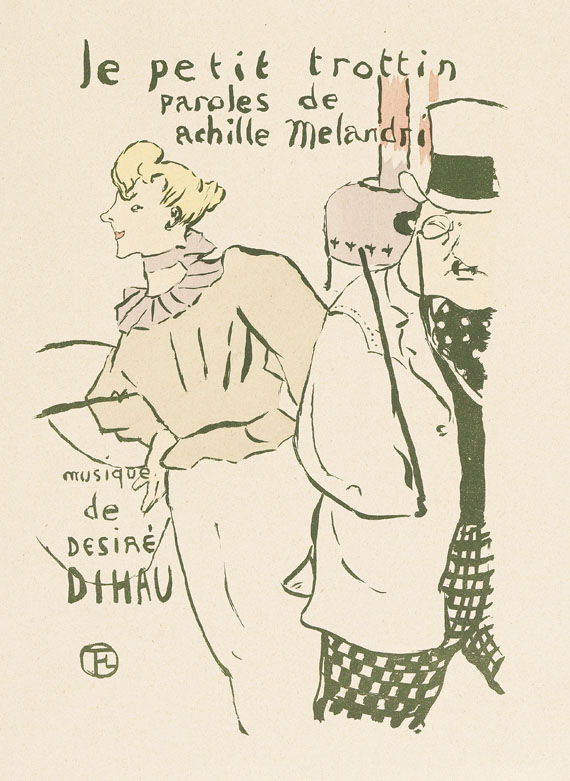 le petit trottin
paroles de
achille Melandri
musique
de
DESIRÉ
DIHAU
HTL